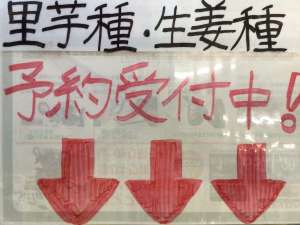 里芋種・生姜種
予約受付中!